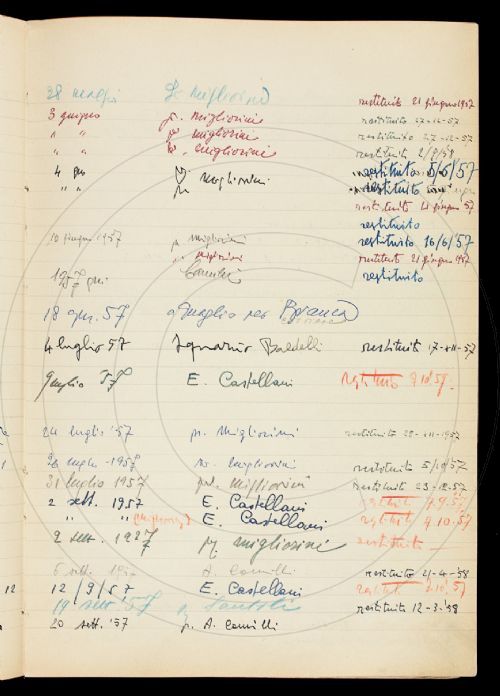 28 maggio Migliorini restituito 21 giugno 1957
3 giugno pr. Migliorini restituito 27-12-57
" " pr. Migliorini restituito 27-12-57
" " pr. Migliorini restituito 2/8/58
4 giu pr. Migliorini restituito 5/6/57
" " restituito
restituito 21 giugno 57
restituito
10 giugno 1957 pr. Migliorini restituito 16/6/57
" pr. Migliorini restituito 21 giugno 1957
1957 giu restituito
18 giu. 57 Quaglio per Bianca
4 luglio 57 Ignazio Baldelli restituito 17-XII-57
9 luglio 57 E. Castellani restituito 9.10.57.
24 luglio '57 pr. Migliorini restituito 28-XII-1957
28 luglio 1957 pr. Migliorini restituito 5/10/57
31 luglio 1957 pr. Migliorini restituito 23-12-57
2 sett. 1957 E. Castellani restituito 9.57
" " (Migliorini) E. Castellani restituito 9.10.57
2 sett. 1957 pr. Migliorini restituito
A. Camilli restituito 21-4-'58
12 12/9/57 E. Castellani restituito 9.10.57
19 sett. '57 restituito 12-3-'58
20 sett. '57 pr. A. Camilli